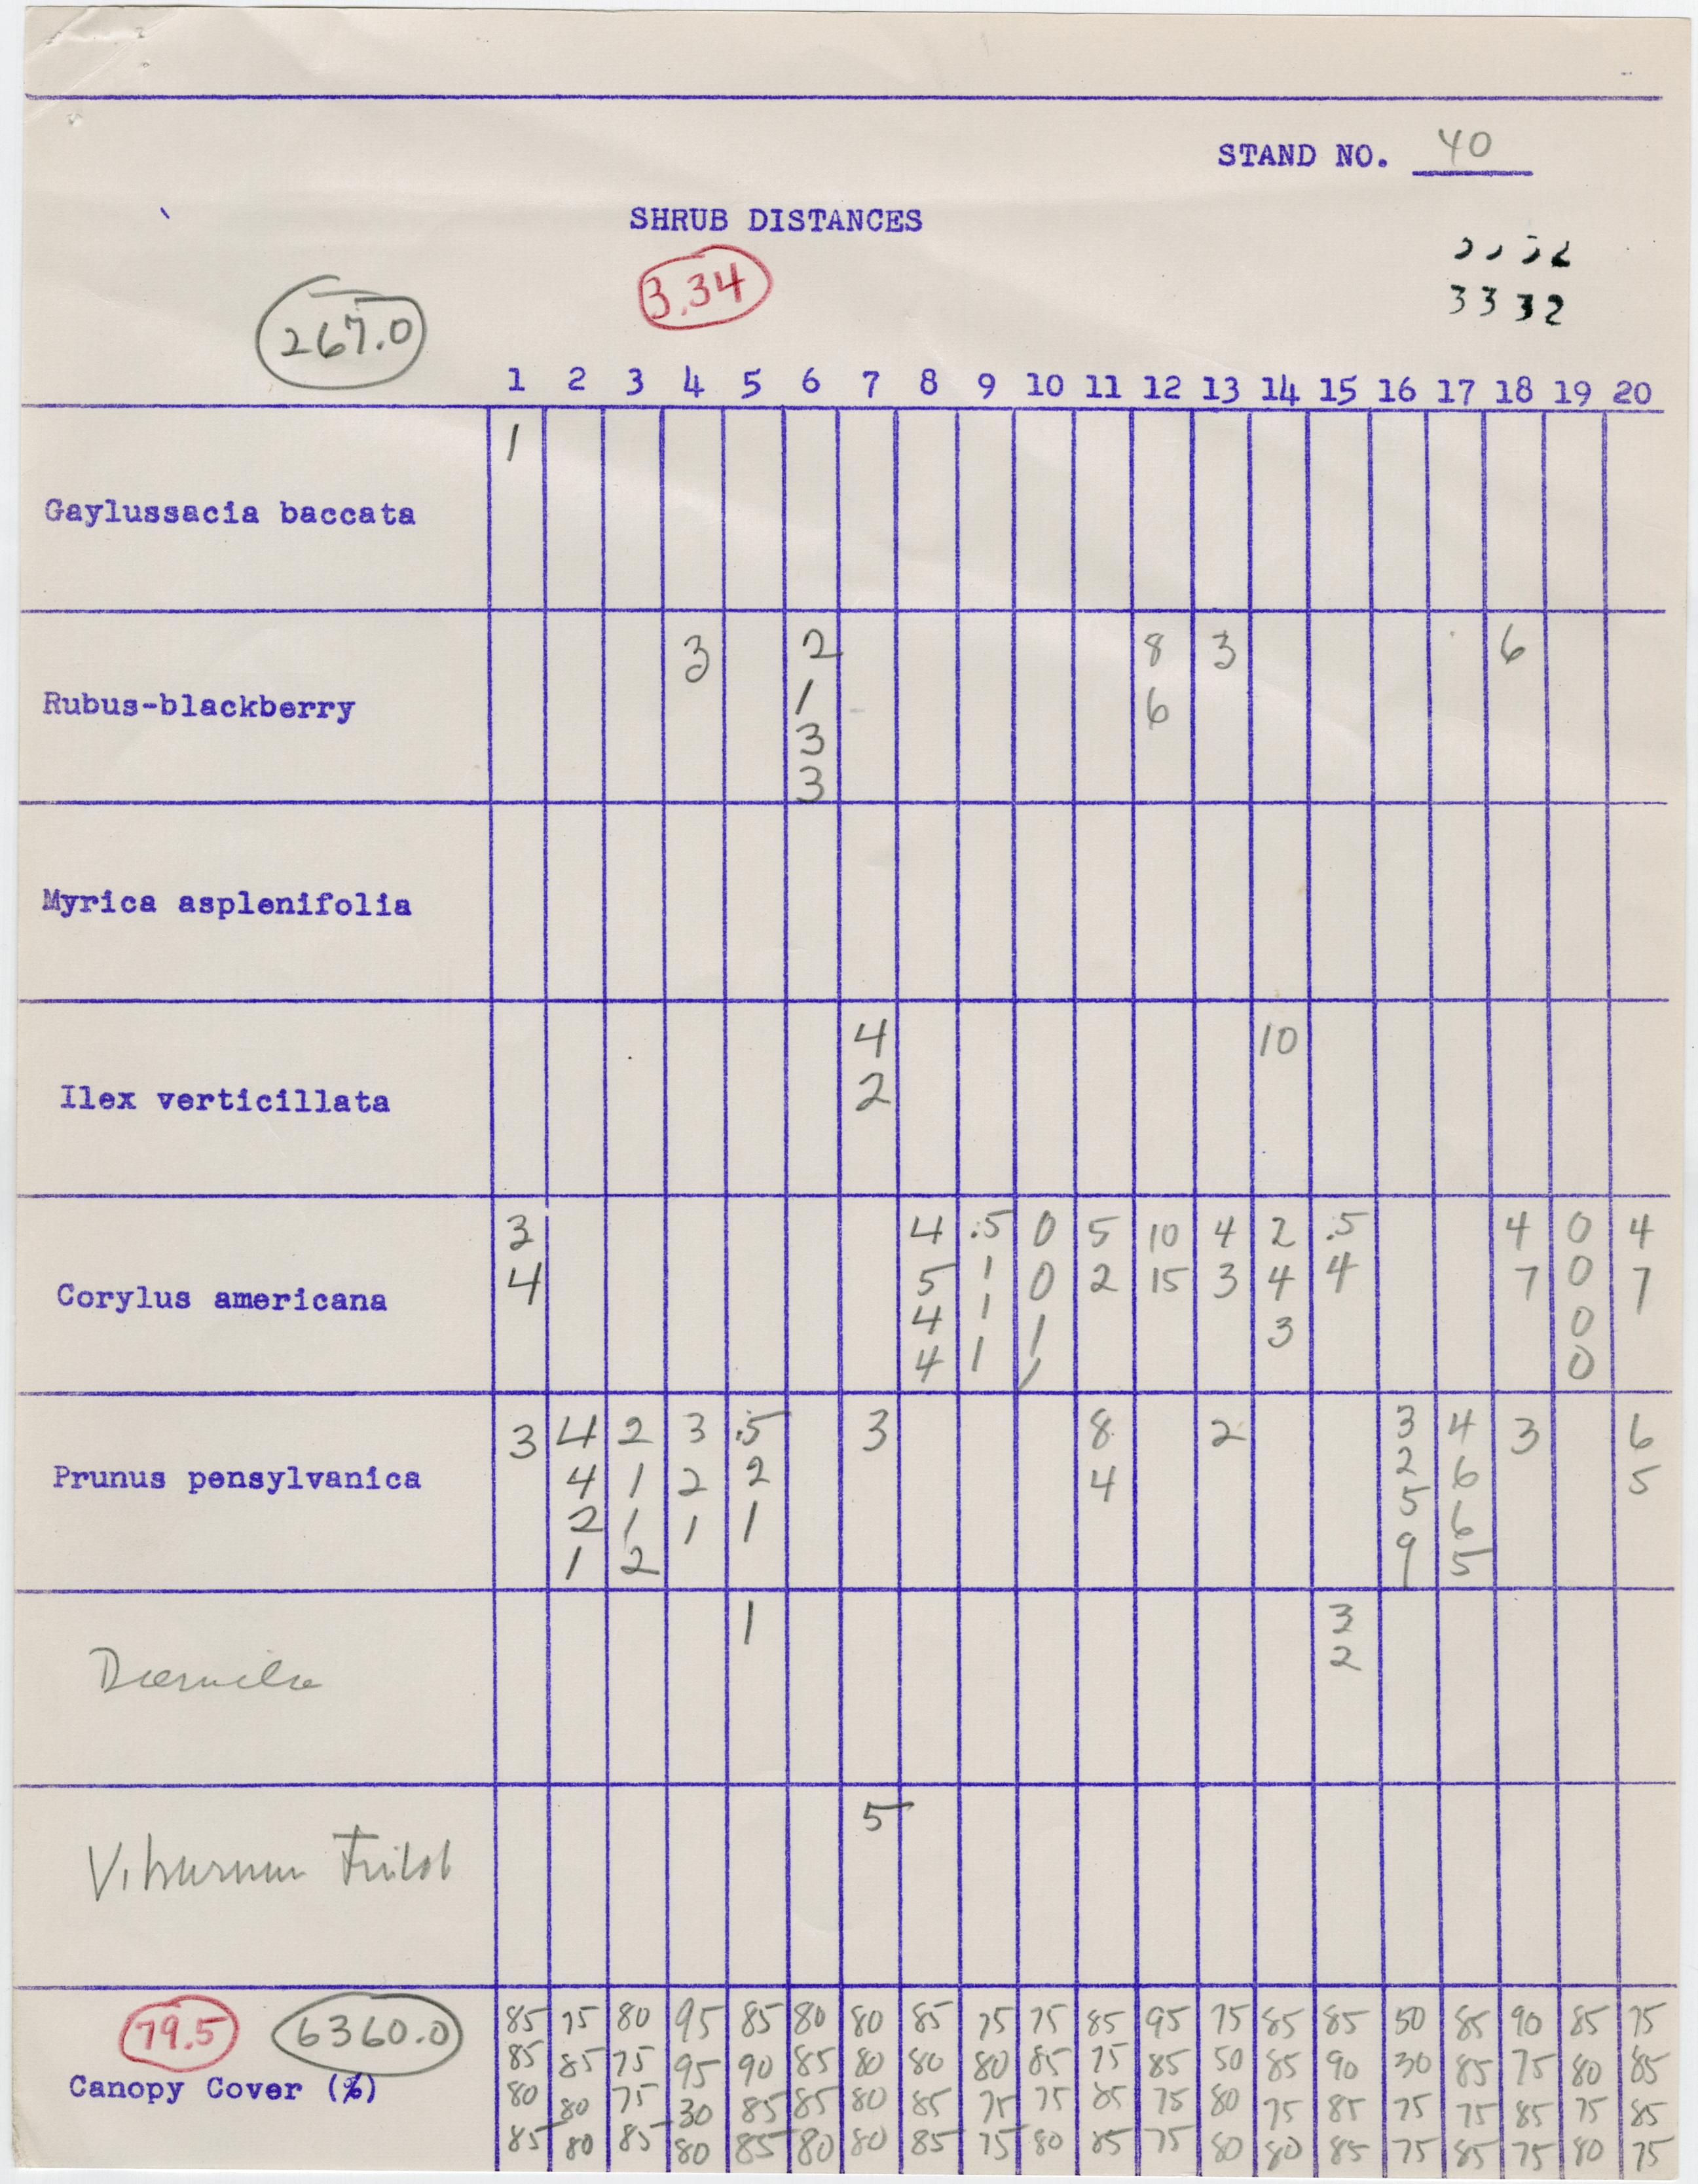 STAND NO. 40
SHRUB DISTANCES
3.34
3 3 3 2
267.0
1 2 3 4 5 6 7 8 9 10 11 12 13 14 15 16 17 18 19 20
1
Gaylussacia baccata
3 2 8 3 6
Rubus-blackberry 1 6
3
3
Myrica asplenifolia
4 10
Ilex verticillata 2
3 4 .5 0 5 10 4 2 .5 4 0 4
Corylus americana 4 5 1 0 2 15 3 4 4 7 0 7
4 1 1 3 0
4 1 1 0
3 4 2 3 .5 3 8 2 3 4 3 6
Prunus pensylvanica 4 1 2 2 4 2 6 5
2 1 1 1 5 6
1 2 9 5
1 3
Diervilla 2
5
Viburnum Trilob
85 75 80 95 85 80 80 85 75 75 85 95 75 85 85 50 85 90 85 75
79.5 6360.0 85 85 75 95 90 85 80 80 80 85 75 85 50 85 90 30 85 75 80 85
Canopy Cover (%) 80 80 75 30 85 85 80 85 75 75 85 75 80 75 85 75 75 85 75 85
85 80 85 80 85 80 80 85 75 80 85 75 80 80 85 75 85 75 80 75